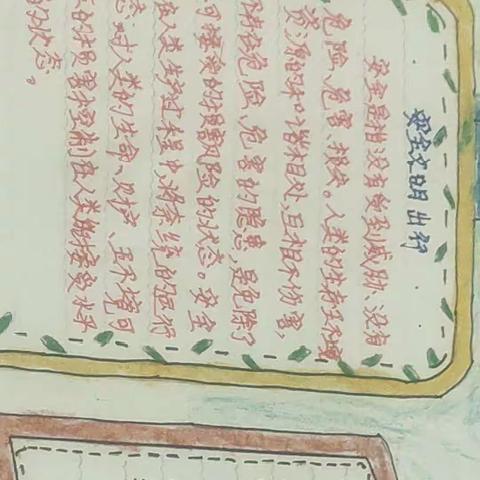 安全文明出行
安全是指没有受到威胁、没有
危险、危害、损失。人类的
资源的和谐相处,互相不伤害,
在危险、危害的隐患,是免除了
可接受的损害风险的状态。安全
在人类生产过程中,将系统的运行
态,对人类的生命、财产、环境可
生的损害控制在人类能接受水平
的状态。